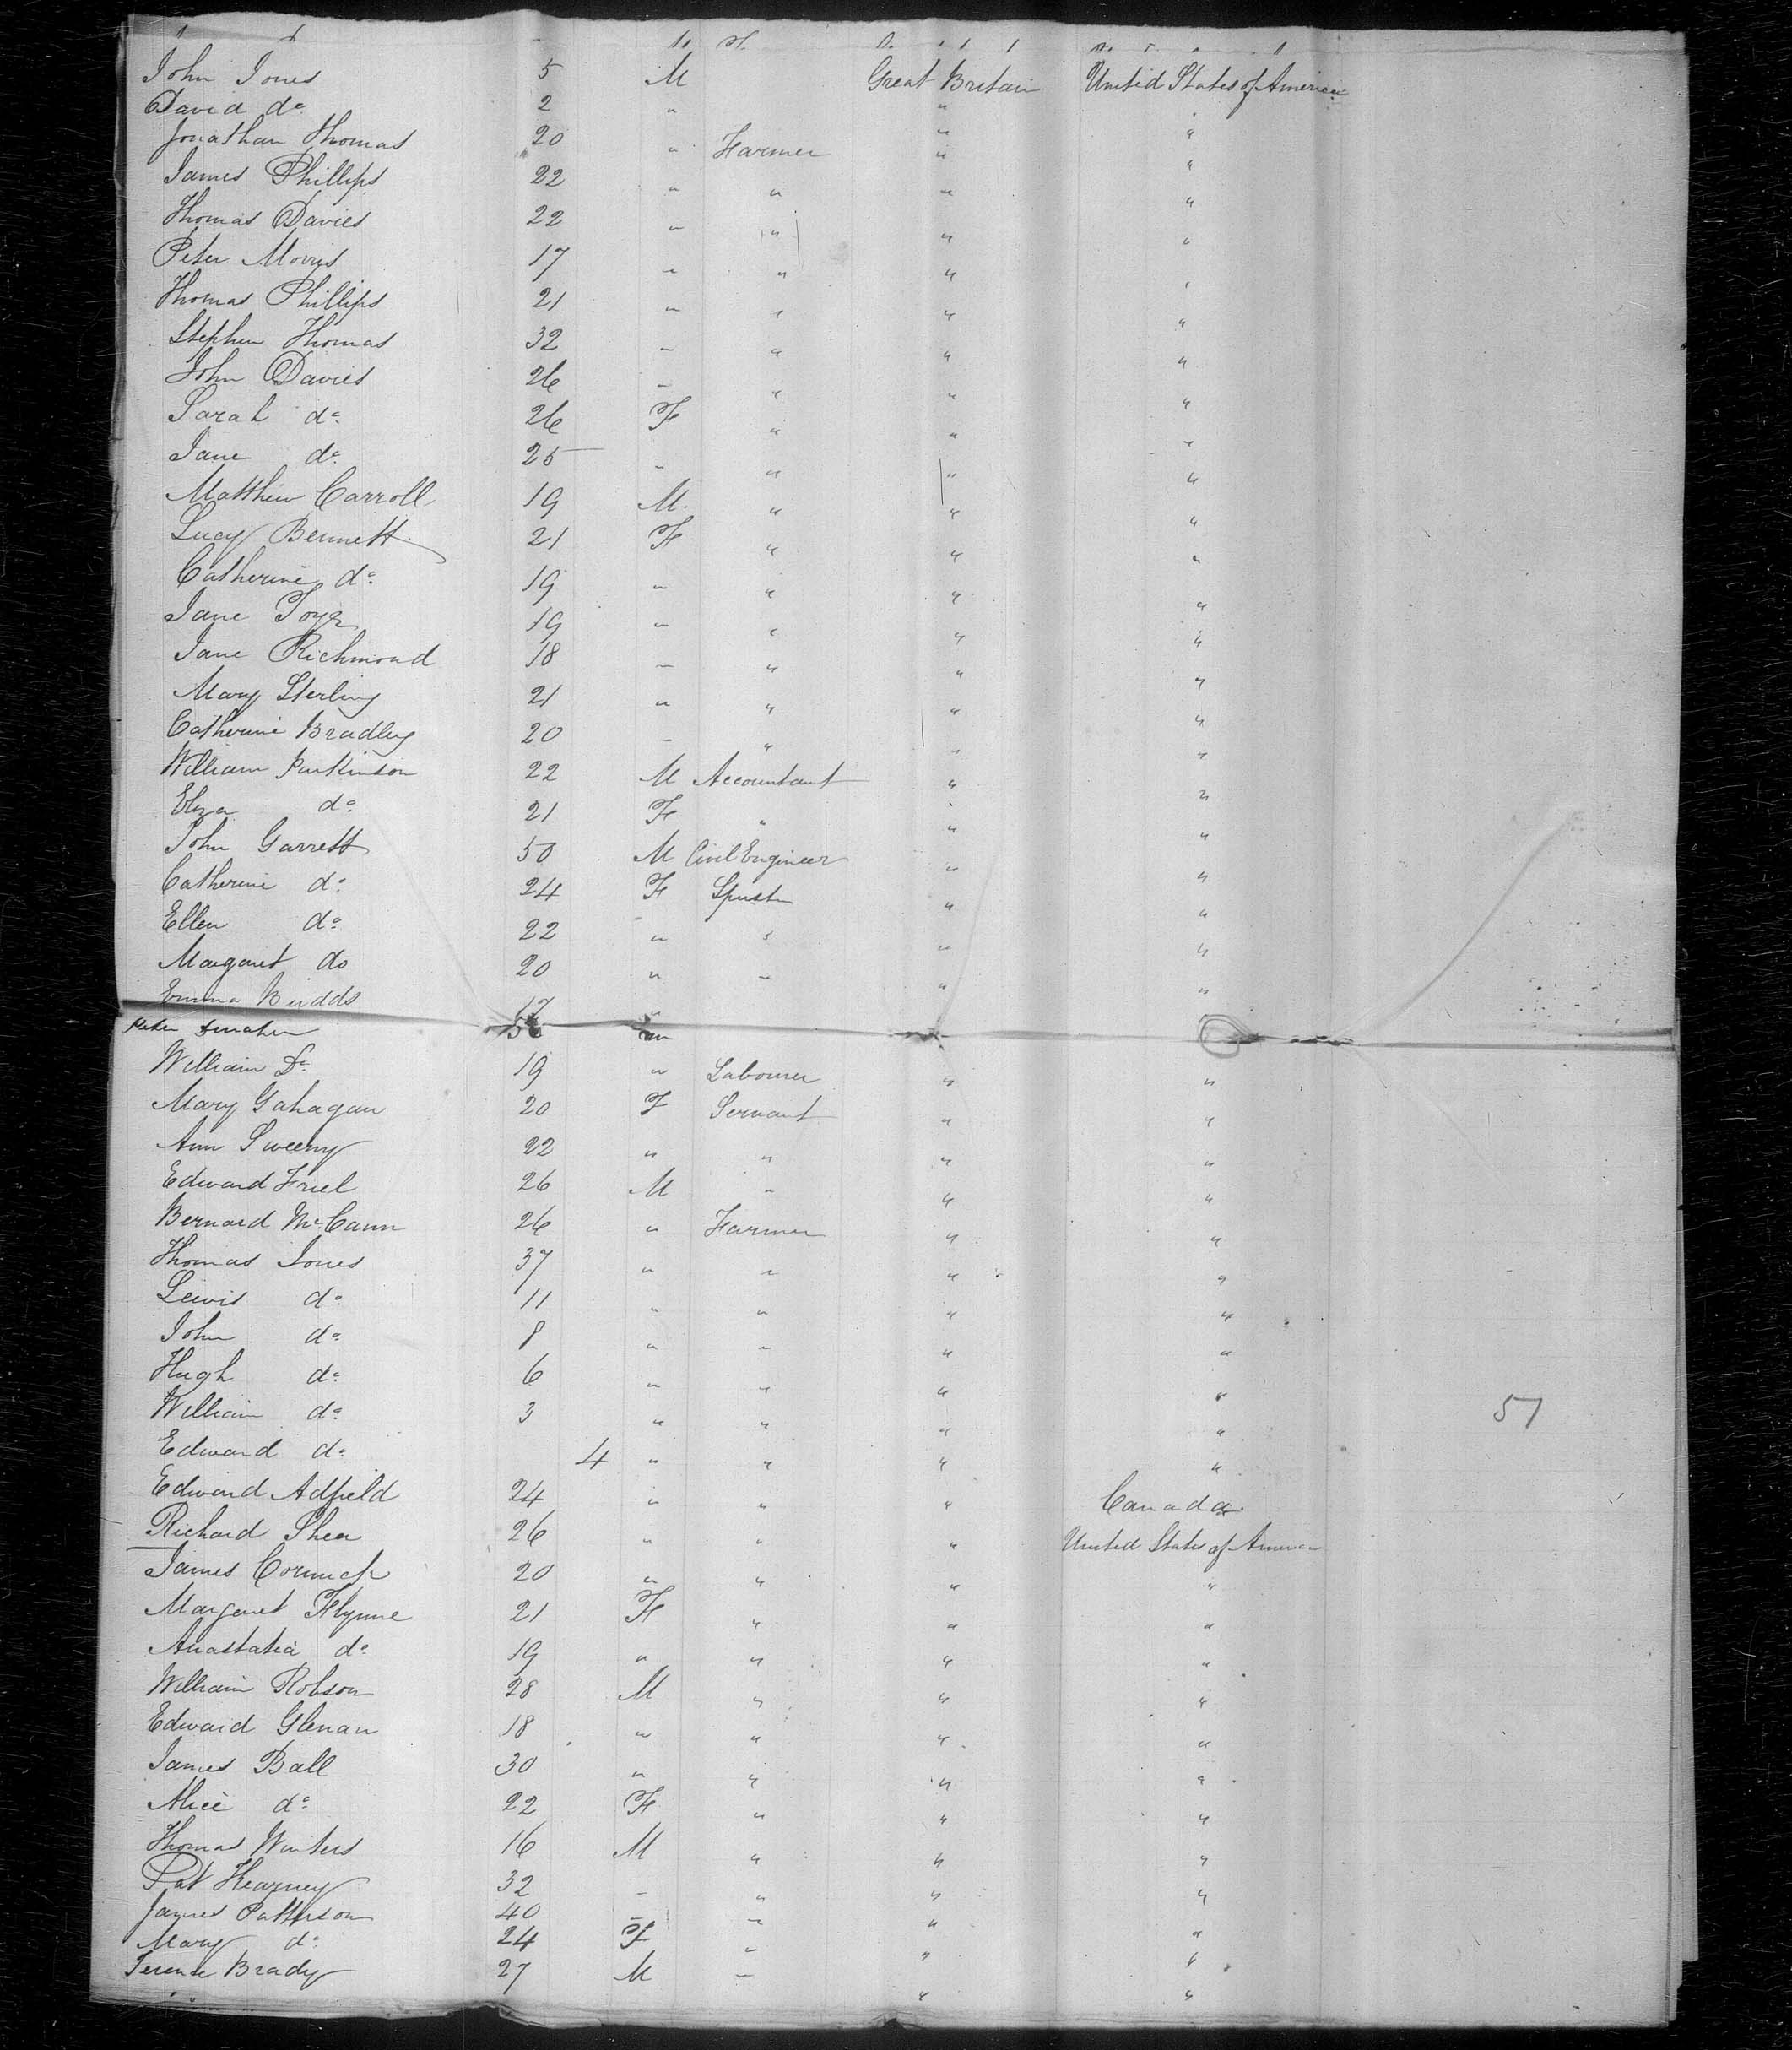 John Jones 5 M Great Britain United States of America
David do 2 " "
Jonathan Thomas 20 " Farmer " "
James Phillips 22 " " " "
Thomas Davies 22 " " " "
Peter Morris 17 " " " "
Thomas Phillips 21 " " " "
Stephen Thomas 32 " " " "
John Davies 26 " " " "
Sarah do 26 F " " "
Jane do 25 " " " "
Matthew Carroll 19 M " " "
Lucy Bennett 21 F " " "
Catherine do 19 " " " "
Jane 19 " " " "
Jane Richmond 18 " " " "
Mary Sterling 21 " " " "
Catherine Bradley 20 " " " "
William Parkinson 22 M Accountant " "
Eliza do 21 F " " "
John Garrett 50 M Civil Engineer " "
Catherine do 24 F " "
Ellen do 22 " " " "
Margaret do 20 " " " "
Emma Budds 17 "
Peter "
William Do 19 " Labourer " "
Mary Gahagan 20 F Servant " "
Ann Sweeny 22 " " " "
Edward Friel 26 M " " "
Bernard McCann 26 " Farmer " "
Thomas Jones 37 " " " "
Lewis do 11 " " " "
John do 8 " " " "
Hugh do 6 " " " "
William do 3 " " " " 57
Edward do 4 " " " "
Edward Adfield 24 " " " Canada
Richard Shea 26 " " " United States of America
James Cormack 20 " " " "
Margaret Flynne 21 F " " "
Anastatia do 19 " " " "
William Robson 28 M " " "
Edward Glenan 18 " " " "
James Ball 30 " " " "
Alice do 22 F " " "
Thomas Winters 16 M " " "
Pat Kearney 32 " " " "
James Patterson 40 " " " "
Mary do 24 F " " "
Terence Brady 27 M " " "